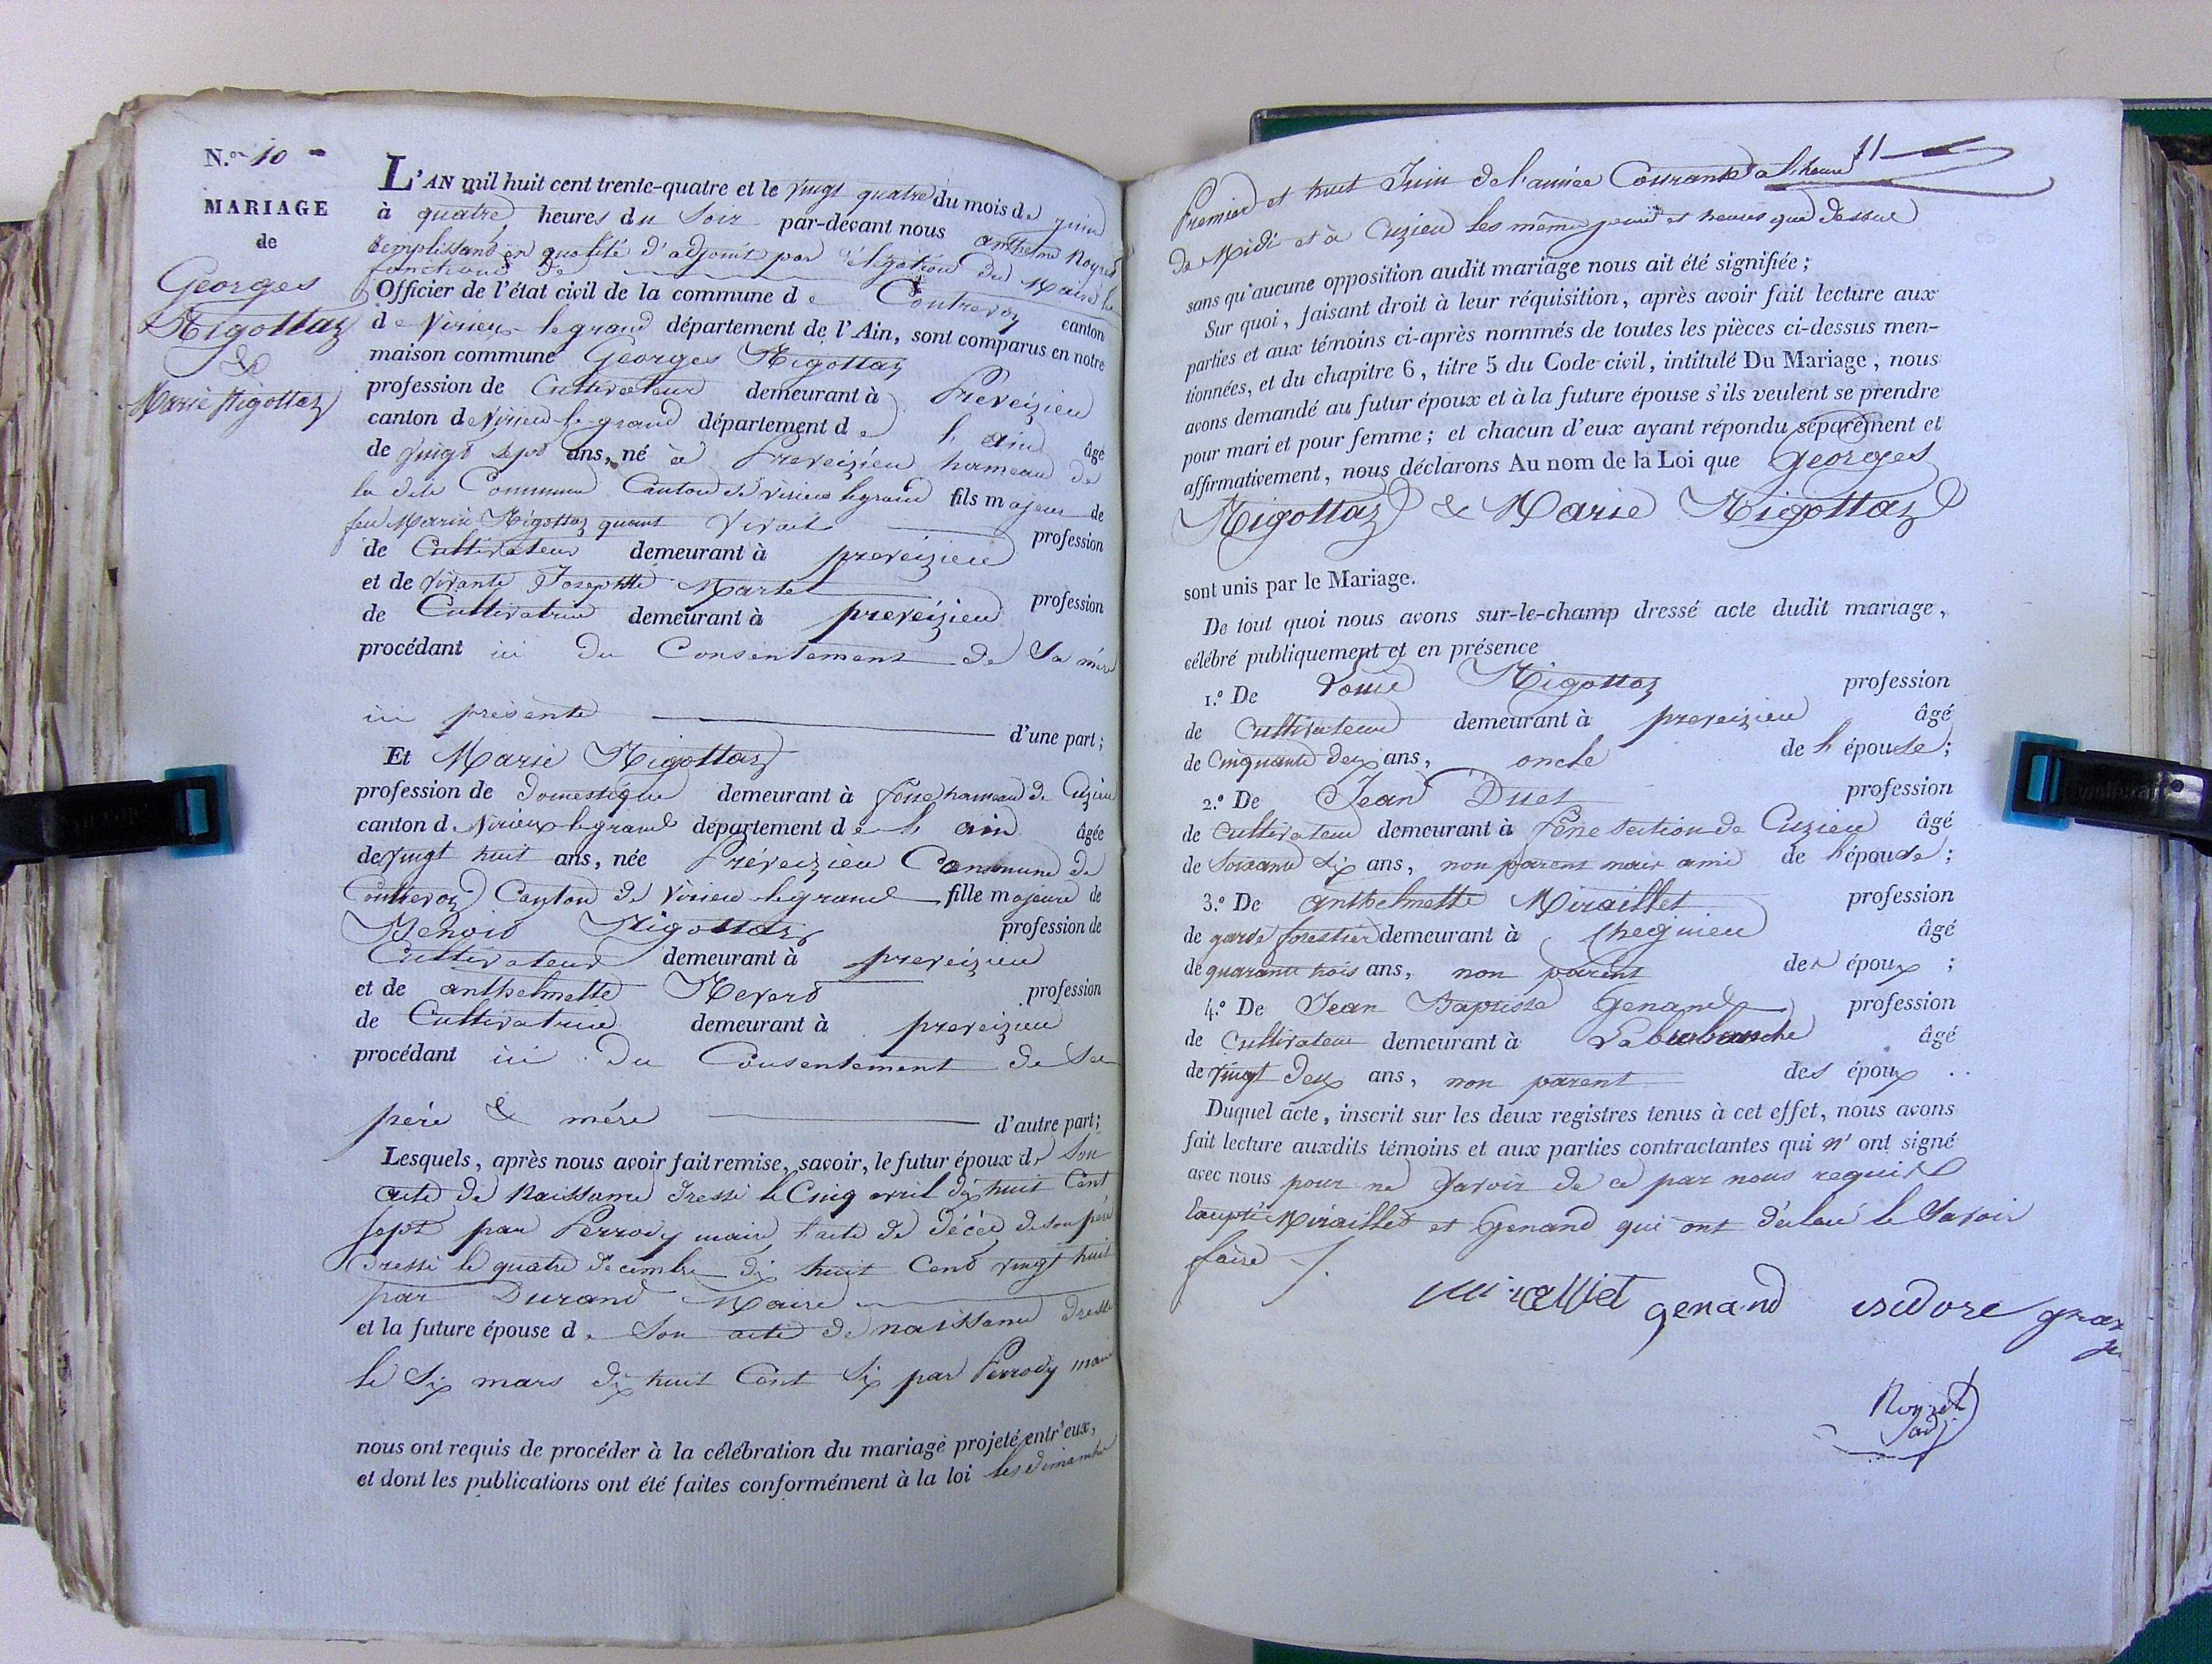 N.º 10
MARIAGE
de
Georges
Rigottaz
&
Marie Rigottaz
L'AN mil huit cent trente-quatre et le vingt quatre du mois de juin
à quatre heures du soir par-devant nous anthelme Noyret
remplissant en qualité d'adjoint par délégation du Maire les
fonctions de
Officier de l'état civil de la commune de Contrevoz canton
de Virieu-le grand département de l'Ain, sont comparus en notre
maison commune Georges Rigottaz
profession de Cultivateur demeurant à Preveizieu
canton de Virieu le grand département de l'ain âgé
de vingt sept ans, né à Preveizieu hameau de
la dite Commune Canton de Virieu legrand fils majeur de
feu Marin Rigottaz quant vivait profession
de Cultivateur demeurant à preveizieu
et de vivante Josephtte Martel profession
de Cultivatrice demeurant à preveizieu
procédant ici du Consentement de Sa mère
ici présente d'une part;
Et Marie Rigottaz
profession de domestique demeurant à hameau de Cuzieu
canton de Virieux legrand département de l'ain âgée
de vingt huit ans, née Préveizieu Commune de
Contrevoz Canton de Virieu legrand fille majeure de
Benoit Rigottaz profession de
Cultivateur demeurant à preveizieu
et de anthelmette Revero profession
de Cultivatrice demeurant à preveizieu
procédant ici du Consentement de Ses
père & mère d'autre part;
Lesquels, après nous avoir fait remise, savoir, le futur époux de Son
acte de Naissance dressé le Cinq avril dix huit Cent
sept par Perrody maire l'acte de décée de son père
dressé le quatre decembre dix huit Cent vingt huit
par Durand Maire
et la future épouse de Son acte de naissance dressé
le Six mars dix huit Cent Six par Perrody maire
nous ont requis de procéder à la célébration du mariage projeté entr'eux,
et dont les publications ont été faites conformément à la loi les dimanche
11
Premier et huit Juin de l'année Courante a l'heure
de Midi et à Cuzieu les même jours et heures que dessus
sans qu'aucune opposition audit mariage nous ait été signifiée;
Sur quoi, faisant droit à leur réquisition, après avoir fait lecture aux
parties et aux témoins ci-après nommés de toutes les pièces ci-dessus men-
tionnées, et du chapitre 6, titre 5 du Code civil, intitulé Du Mariage, nous
avons demandé au futur époux et à la future épouse s'ils veulent se prendre
pour mari et pour femme; et chacun d'eux ayant répondu séparément et
affirmativement, nous déclarons Au nom de la Loi que Georges
Rigottaz & Marie Rigottaz
sont unis par le Mariage.
De tout quoi nous avons sur-le-champ dressé acte dudit mariage,
célébré publiquement et en présence
1.º De Louis Rigottaz profession
de Cultivateur demeurant à preveizieu âgé
de Cinquante deux ans, oncle de l'épouse;
2.º De Jean Duet profession
de Cultivateur demeurant à section de Cuzieu âgé
de Soixante Six ans, non parent mais ami de l'épouse;
3.º De anthelmette Miraillet profession
de garde forestier demeurant à Chegnieu âgé
de quarante trois ans, non parent des époux;
4.º De Jean Baptiste Genand profession
de Cultivateur demeurant à Laburbanche âgé
de vingt deux ans, non parent des époux ..
Duquel acte, inscrit sur les deux registres tenus à cet effet, nous avons
fait lecture auxdits témoins et aux parties contractantes qui n'ont signé
avec nous pour ne savoir de ce par nous requis
Excepté Miraillet et Genand qui ont déclaré le Savoir
faire
Miralliet genand isidore
Noyret
adj